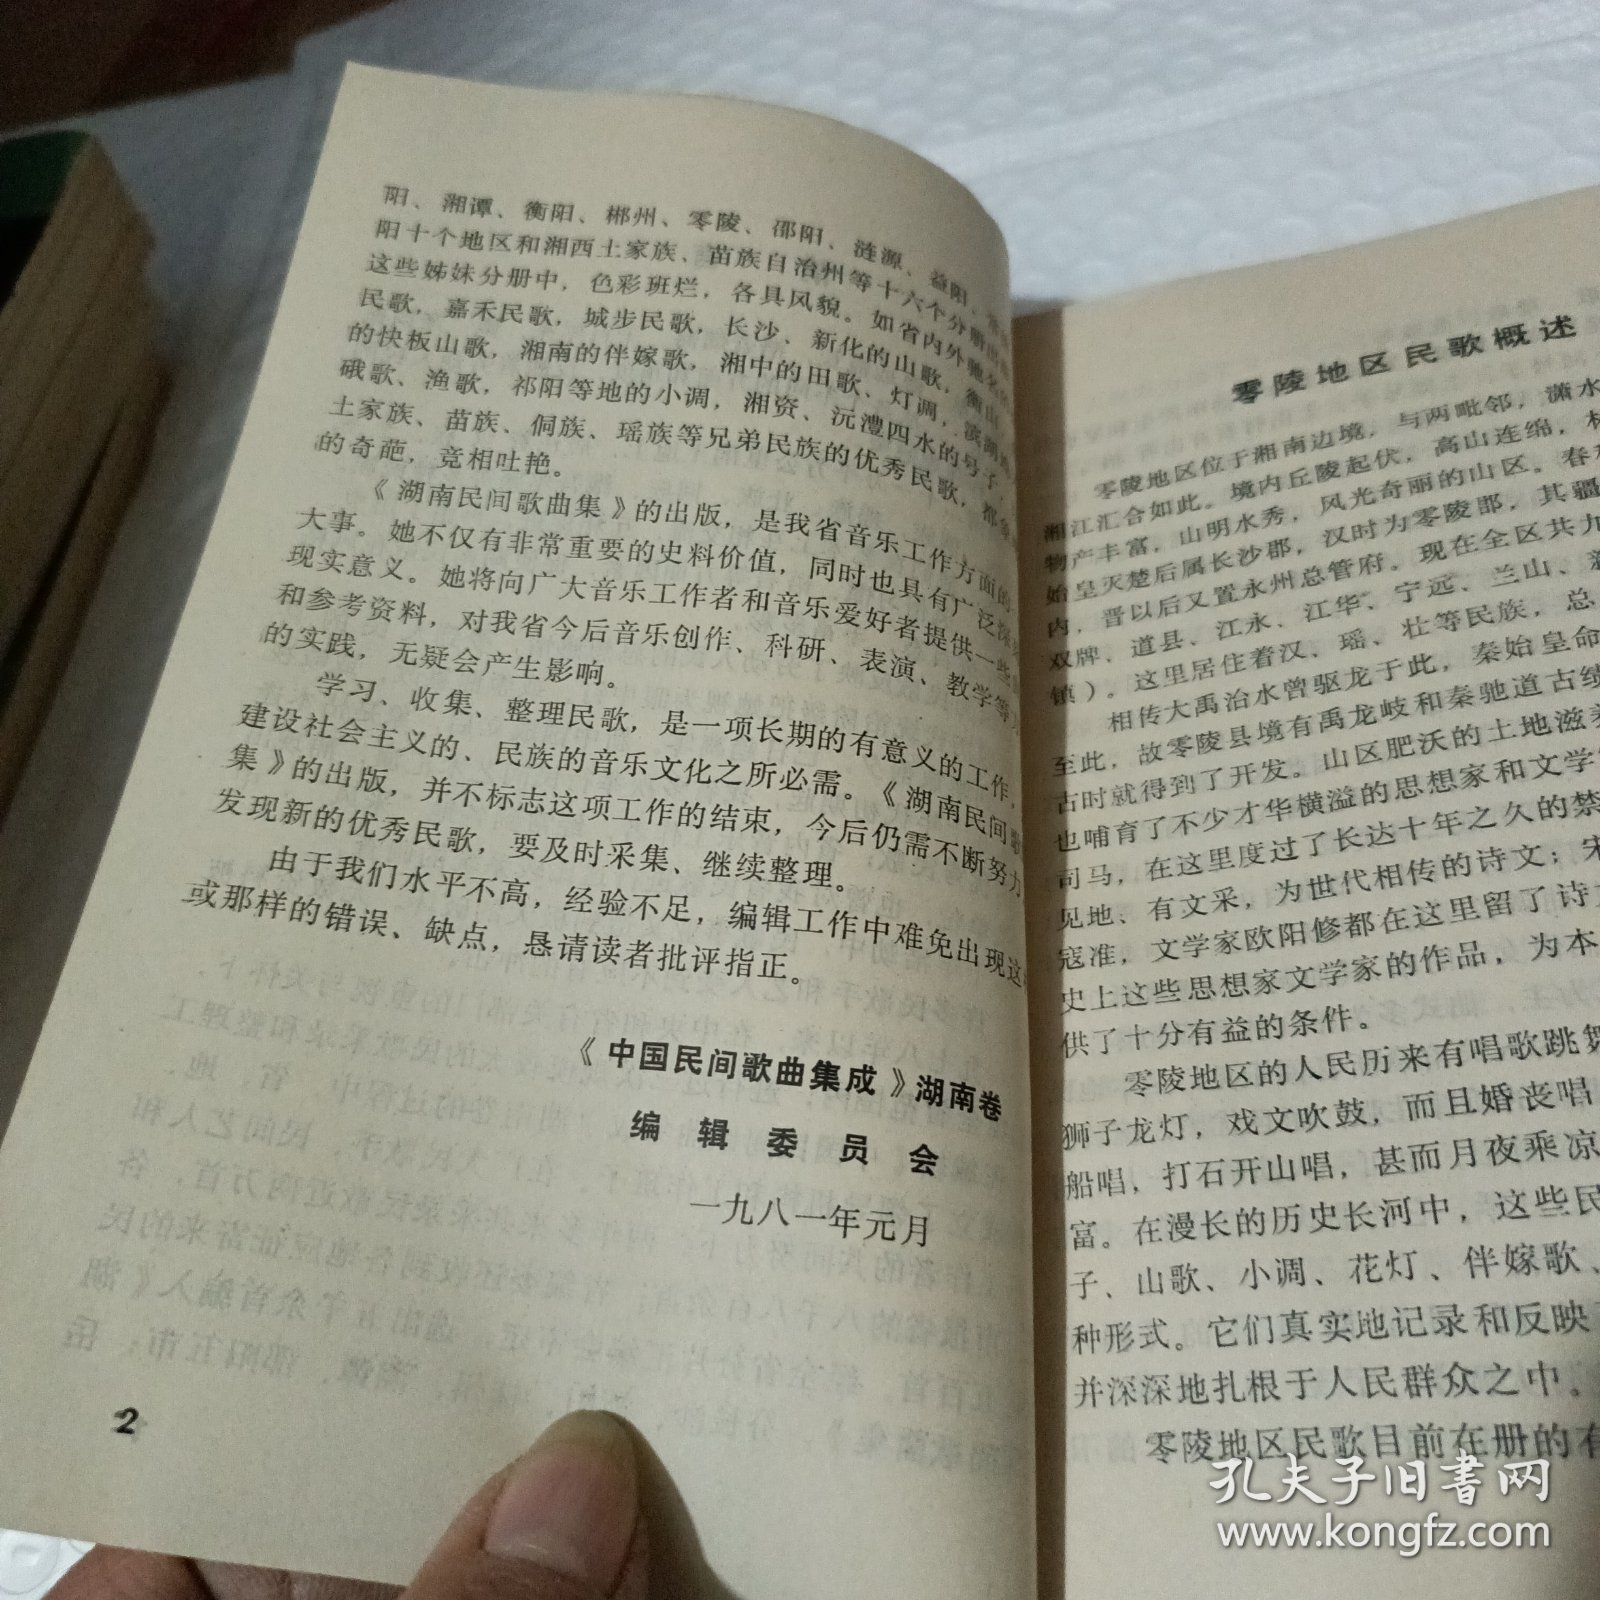 阳、湘潭、衡阳、郴州、零陵、邵阳、涟源、益阳、
阳十个地区和湘西土家族、苗族自治州等十六个分册出
这些姊妹分册中，色彩班烂，各具风貌。如省内外驰名
民歌，嘉禾民歌，城步民歌，长沙、新化的山歌，衡山
的快板山歌，湘南的伴嫁歌，湘中的田歌、灯调，滨湖
硪歌、渔歌，祁阳等地的小调，湘资、沅澧四水的号子
土家族、苗族、侗族、瑶族等兄弟民族的优秀民歌，都
的奇葩，竞相吐艳。
《湖南民间歌曲集》的出版，是我省音乐工作方面的
大事。她不仅有非常重要的史料价值，同时也具有广泛深
现实意义。她将向广大音乐工作者和音乐爱好者提供一些
和参考资料，对我省今后音乐创作、科研、表演、教学等
的实践，无疑会产生影响。
学习、收集、整理民歌，是一项长期的有意义的工作，
建设社会主义的、民族的音乐文化之所必需。《湖南民间歌
集》的出版，并不标志这项工作的结束，今后仍需不断努力
发现新的优秀民歌，要及时采集、继续整理。
由于我们水平不高，经验不足，编辑工作中难免出现这
或那样的错误、缺点，恳请读者批评指正。
《中国民间歌曲集成》湖南卷
编辑委员会
一九八一年元月
2
零陵地区民歌概述
零陵地区位于湘南边境，与两毗邻，潇水
湘江汇合如此。境内丘陵起伏，高山连绵，林
物产丰富，山明水秀，风光奇丽的山区。春秋
始皇灭楚后属长沙郡，汉时为零陵郡，其疆
内，晋以后又置永州总管府。现在全区共九
双牌、道县、江永、江华、宁远、兰山、新
镇）。这里居住着汉、瑶、壮等民族，总
相传大禹治水曾驱龙于此，秦始皇命
至此，故零陵县境有禹龙岐和秦驰道古绩
古时就得到了开发。山区肥沃的土地滋养
也哺育了不少才华横溢的思想家和文学
司马，在这里度过了长达十年之久的禁
见地、有文采，为世代相传的诗文；宋
寇准，文学家欧阳修都在这里留了诗
史上这些思想家文学家的作品，为本
供了十分有益的条件。
零陵地区的人民历来有唱歌跳舞
狮子龙灯，戏文吹鼓，而且婚丧唱
船唱，打石开山唱，甚而月夜乘凉
富。在漫长的历史长河中，这些民
子、山歌、小调、花灯、伴嫁歌、
种形式。它们真实地记录和反映
并深深地扎根于人民群众之中。
零陵地区民歌目前在册的有
孔夫子旧书网
www.kongfz.com